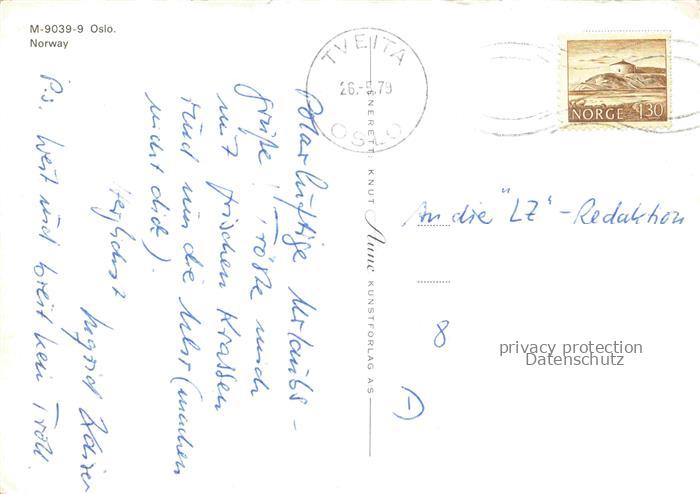 M-9039-9 Oslo.
Norway
TVEITA
26.-5.79
OSLO
NORGE 130
ENERETT: KNUT Aune KUNSTFORLAG AS
Polarluftige Urlaubs-
grüße! Tröste mich
mit frischen Krabben
rund um die Uhr (machen
nicht dick).
Herzlichst
Ingrid
P.S. Weit und breit kein Troll.
An die "LZ"-Redaktion
8
privacy protection
Datenschutz